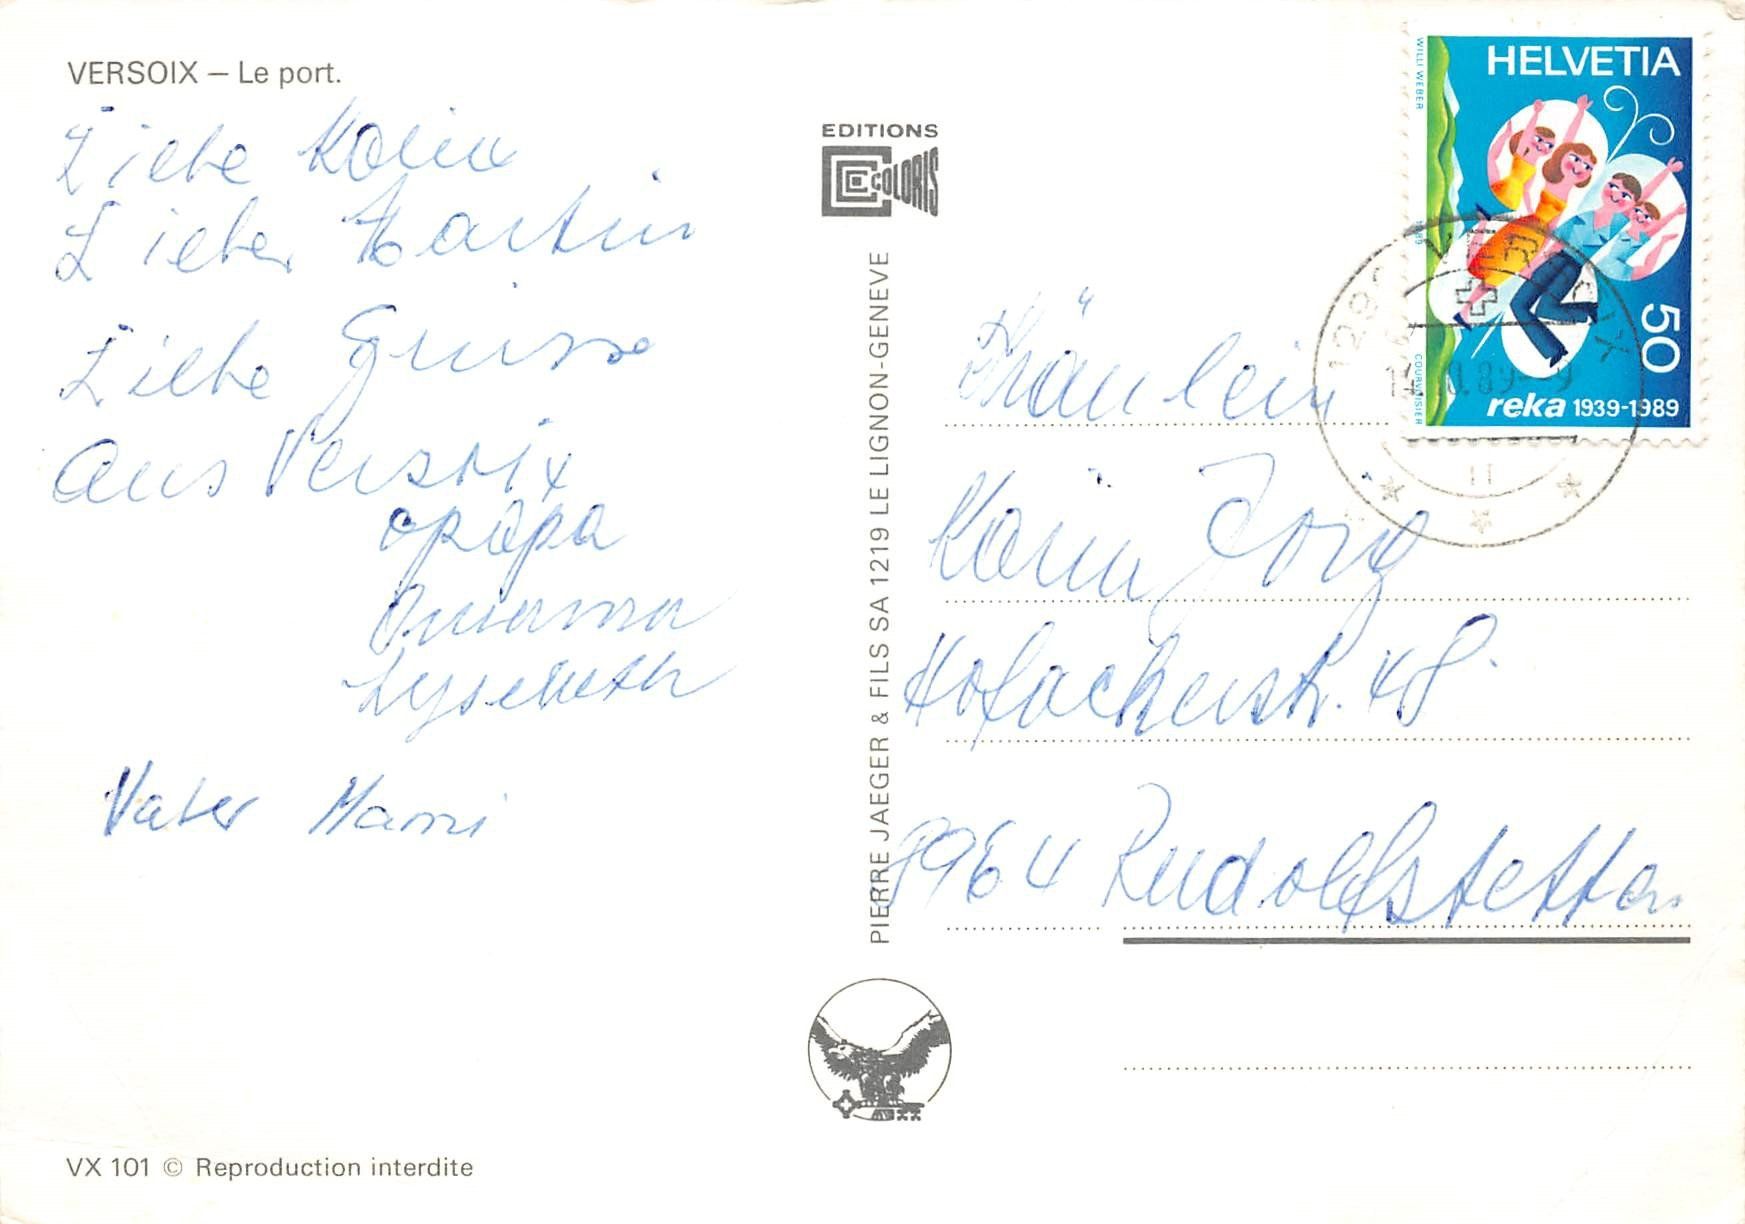 VERSOIX – Le port.
Liebe Karin
Lieber Martin
Liebe Grüsse
aus Versoix
Opapa
Omama
Vater Mami
EDITIONS
COLORIS
PIERRE JAEGER & FILS SA 1219 LE LIGNON-GENEVE
WILLI WEBER
1989
COURVOISIER
HELVETIA
50
reka 1939-1989
1290 VERSOIX
Fräulein
Karin Jorg
Hofackerstr. 48.
8964 Rudolfstetten
VX 101 © Reproduction interdite